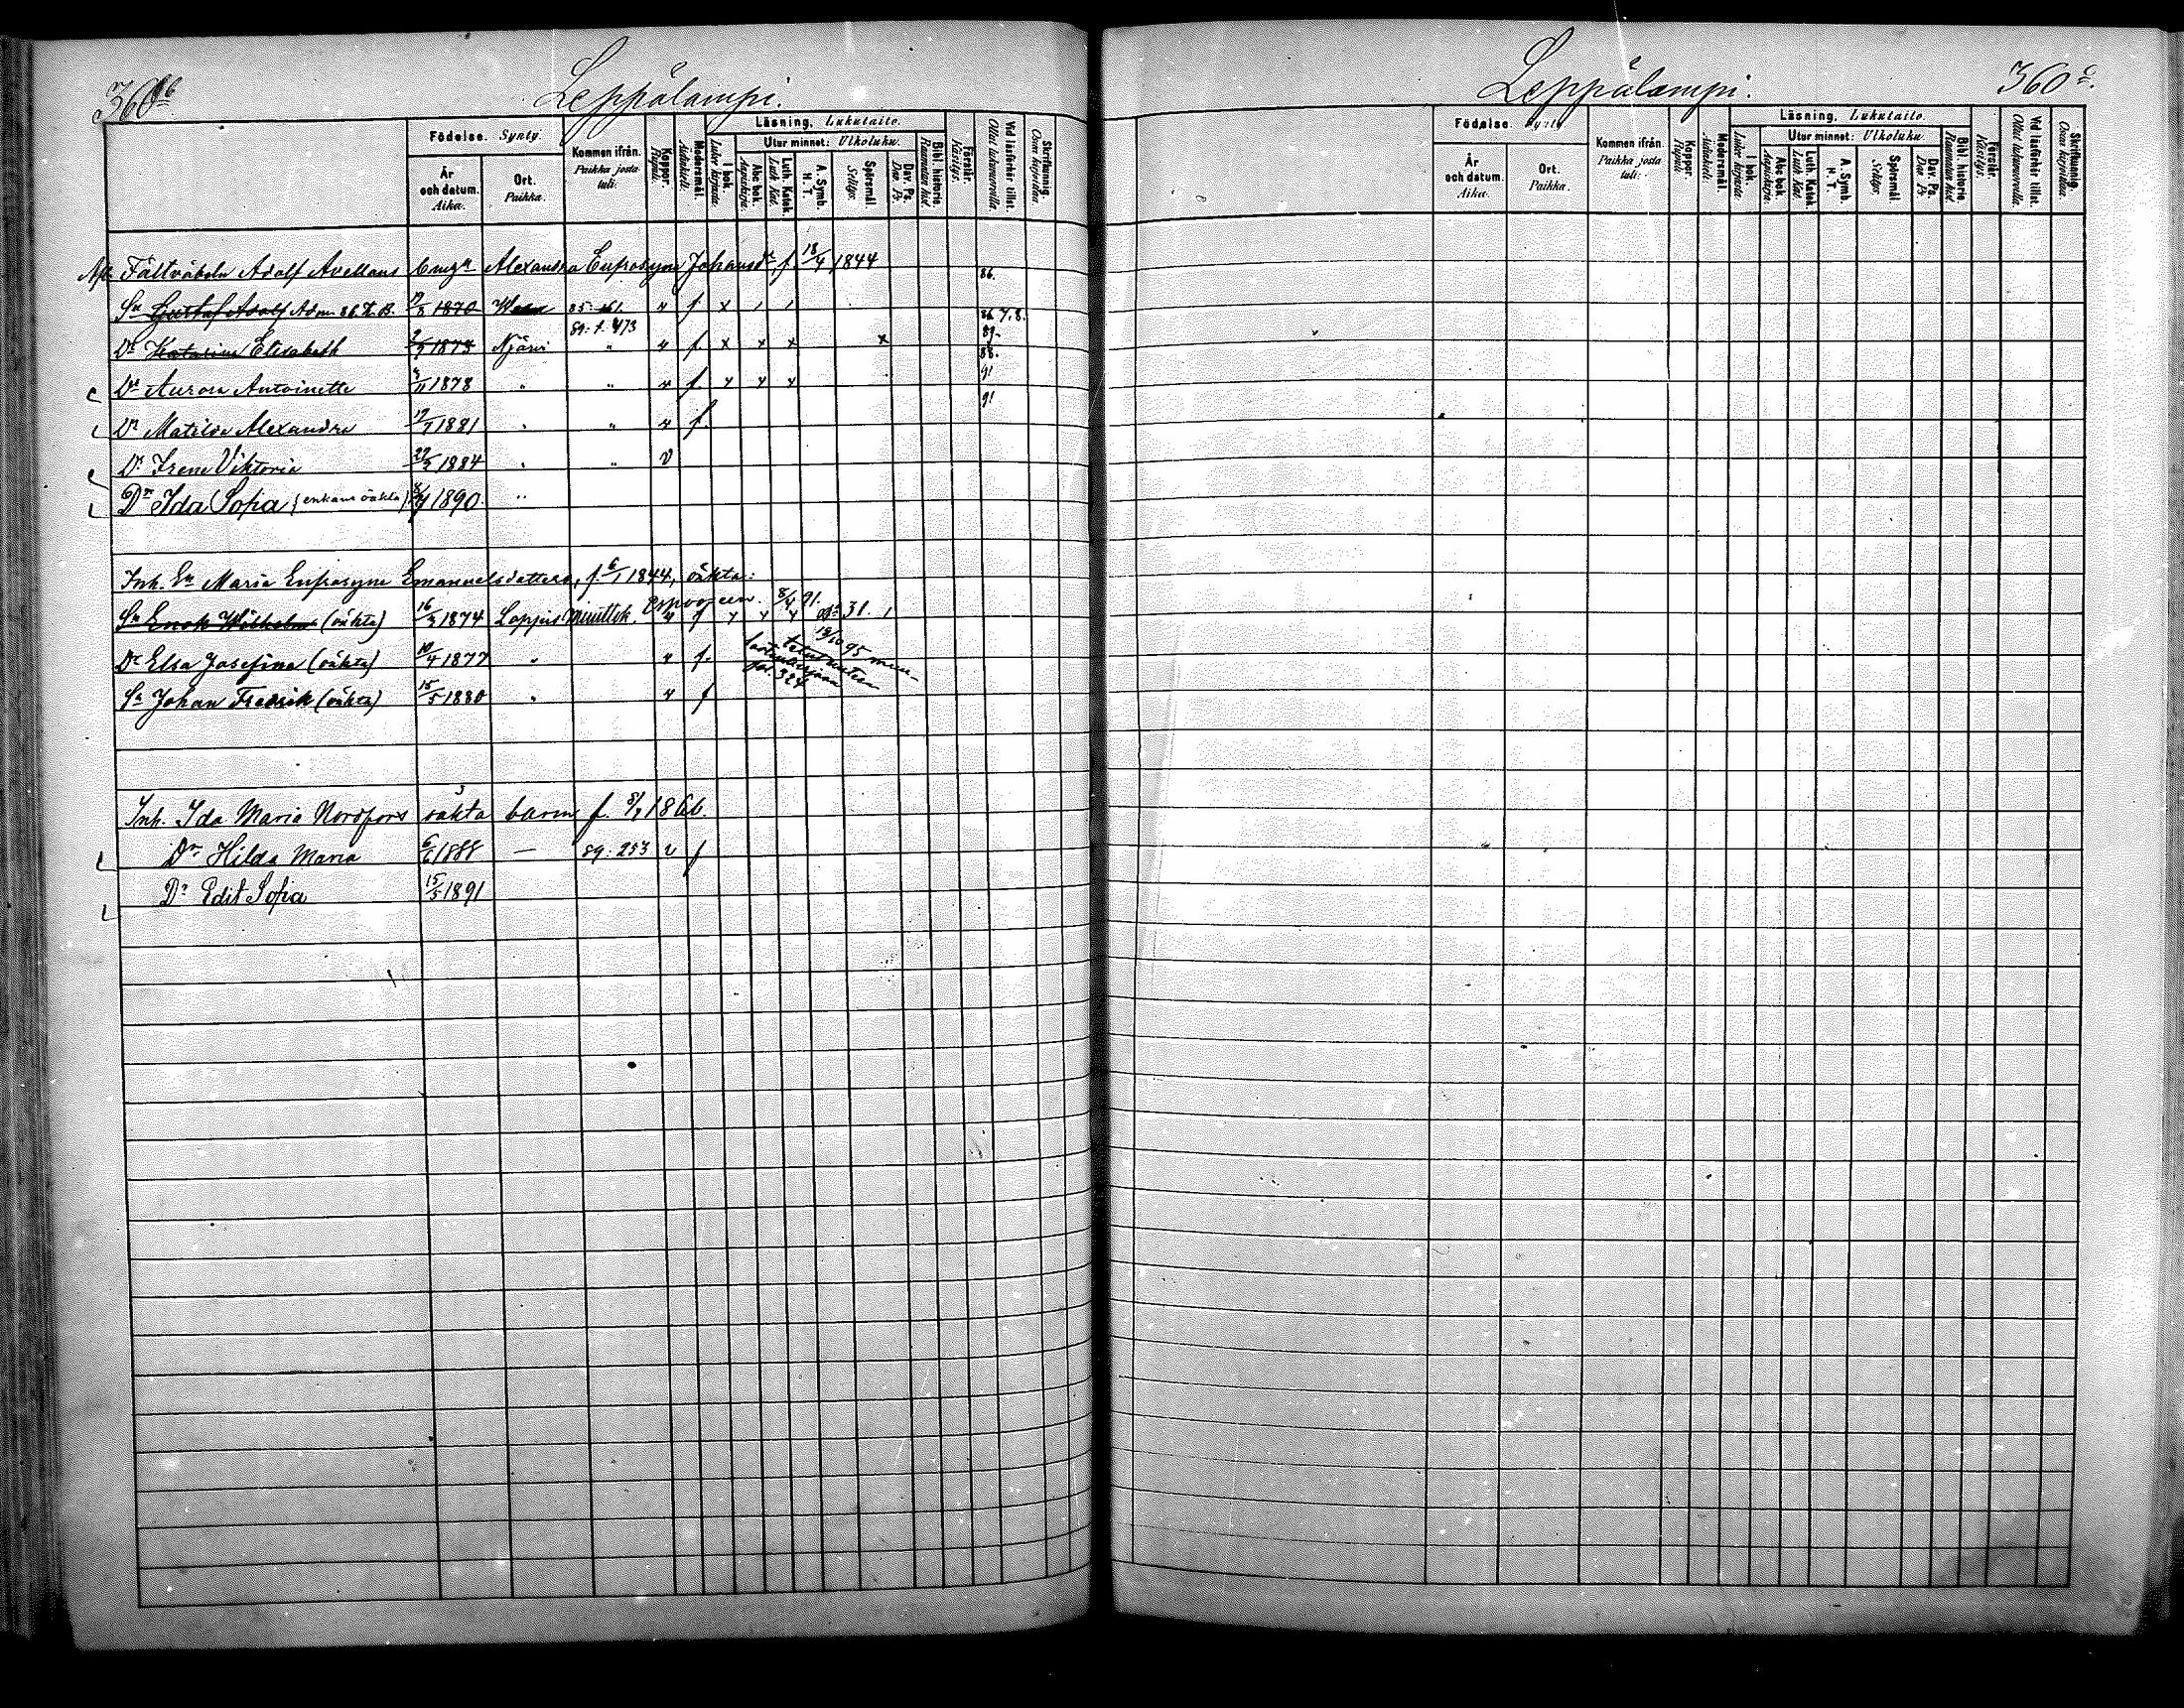 360b
Leppälampi.
Födelse. Synty.
År och datum. Aika.
Ort. Paikka.
Kommen ifrån. Paikka josta tuli.
Koppor. Rupuli.
Modersmål. Äidinkieli.
Läsning. Lukutaito.
I bok. Luku kirjasta.
Utur minnet: Ulkoluku.
Abc bok. Aapiskirja.
Luth. Katek. Luth. Kat.
A. Symb. H. T.
Spörsmål. Selitys.
Dav. Ps. Dav. Ps.
Bibl. historia
Förstår. Käsitys.
Vid läsförhör tillst. Ollut lukuvuoroilla.
Skrifkunnig. Osaa kirjoittaa.
Fältväbeln Adolf Avellans Alexandra Eufrosyne Johansdr, f. 18/4 1844
86.
Sn Gustaf Adolf Adm. 86 1870 85: 161. v f x
86. 7. 8.
89. f. 473
Dr Katarina Elisabeth 1873 Njärvi " v f. x x x x
89. 88.
Dr Aurora Antoinette 1878 " " v f.
91
Dr Matilda Alexandra 1881 " " v f
91
Dr Irene Viktoria 1884 " " v
Dr Ida Sofia (enkans oäkta) 1890. "
Inh. En Maria Eufrosyne Emanuelsdotters, f. 6/1 1844, oäkta:
Sn Enok Wilhelm (oäkta) 16/3 1874 Loppis Espooseen. 8/4 91. 31.
Dr Elsa Josefina (oäkta) 10/4 1877 " v f.
fol. 324
Sn Johan Fredrik (oäkta) 15/5 1880 " v f
Inh. Ida Maria Nordfors oäkta barn f. 1866.
Dr Hilda Maria 6/6 1888 — 89: 253 v f
Dr Edit Sofia 15/5 1891
Leppälampi.
360c.
Födelse. Synty.
År och datum. Aika.
Ort. Paikka.
Kommen ifrån. Paikka josta tuli.
Koppor. Rupuli.
Modersmål. Äidinkieli.
Läsning. Lukutaito.
I bok. Luku kirjasta.
Utur minnet: Ulkoluku.
Abc bok. Aapiskirja.
Luth. Katek. Luth. Kat.
A. Symb. H. T.
Spörsmål. Selitys.
Dav. Ps. Dav. Ps.
Bibl. historia.
Förstår. Käsitys.
Vid läsförhör tillst. Ollut lukuvuoroilla
Skrifkunnig. Osaa kirjoittaa.